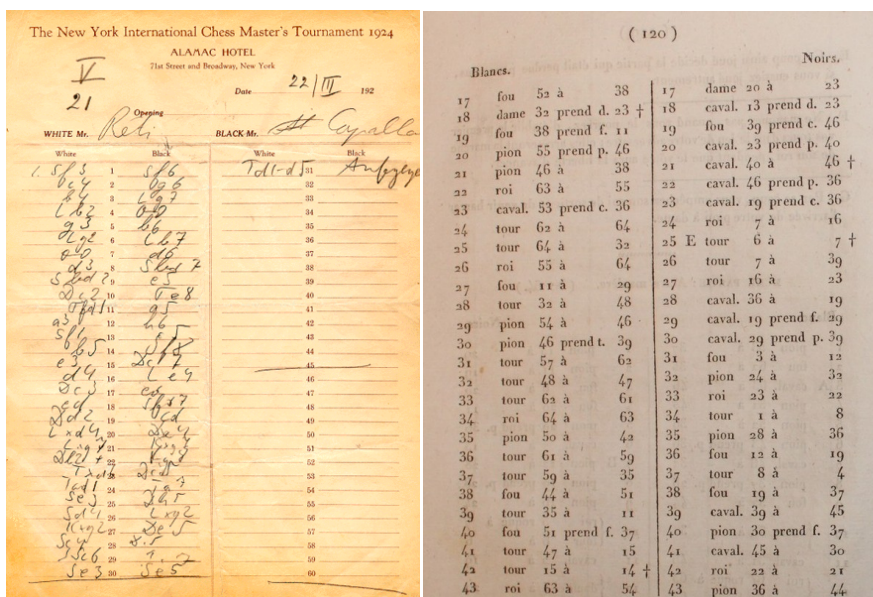 The New York International Chess Master's Tournament 1924
ALAMAC HOTEL
71st Street and Broadway, New York
V
21
Date 22/III 192
Opening
WHITE Mr. Reti BLACK Mr. Capablanca
White Black White Black
1. Sf3 1 Sf6 Td1-d5 31
c4 2 g6 32
b4 3 Lg7 33
Lb2 4 0-0 34
g3 5 b6 35
Lg2 6 Lb7 36
0-0 7 d6 37
d3 8 Sbd7 38
Sbd2 9 e5 39
Dc2 10 Te8 40
Tfd1 11 a5 41
a3 12 h6 42
Sf1 13 c5 43
b5 14 Sf8 44
e3 15 Dc7 45
d4 16 Le4 46
Dc3 17 ed 47
ed 18 48
Dd2 19 cd 49
Lxd4 20 Dc4 50
Lxg7 21 Kxg7 51
Db2+ 22 52
Txd6 23 Dc5 53
Tad1 24 Ta7 54
Se3 25 Dh5 55
Sd4 26 Lxg2 56
Kxg2 27 De5 57
Sc4 28 58
Sc6 29 59
Se3 30 Se5 60
( 120 )
Blancs.
17 fou 52 à 38
18 dame 32 prend d. 23 †
19 fou 38 prend f. 11
20 pion 55 prend p. 46
21 pion 46 à 38
22 roi 63 à 55
23 caval. 53 prend c. 36
24 tour 62 à 64
25 tour 64 à 32
26 roi 55 à 64
27 fou 11 à 29
28 tour 32 à 48
29 pion 54 à 46
30 pion 46 prend t. 39
31 tour 57 à 62
32 tour 48 à 47
33 tour 62 à 61
34 roi 64 à 63
35 pion 50 à 42
36 tour 61 à 59
37 tour 59 à 35
38 fou 44 à 51
39 tour 35 à 11
40 fou 51 prend f. 37
41 tour 47 à 15
42 tour 15 à 14 †
43 roi 63 à 54
Noirs.
17 dame 20 à 23
18 caval. 13 prend d. 23
19 fou 39 prend c. 46
20 caval. 23 prend p. 40
21 caval. 40 à 46 †
22 caval. 46 prend p. 36
23 caval. 19 prend c. 36
24 roi 7 à 16
25 E tour 6 à 7 †
26 tour 7 à 39
27 roi 16 à 23
28 caval. 36 à 19
29 caval. 19 prend f. 29
30 caval. 29 prend p. 39
31 fou 3 à 12
32 pion 24 à 32
33 roi 23 à 22
34 tour 1 à 8
35 pion 28 à 36
36 fou 12 à 19
37 tour 8 à 4
38 fou 19 à 37
39 caval. 39 à 45
40 pion 30 prend f. 37
41 caval. 45 à 30
42 roi 22 à 21
43 pion 36 à 44